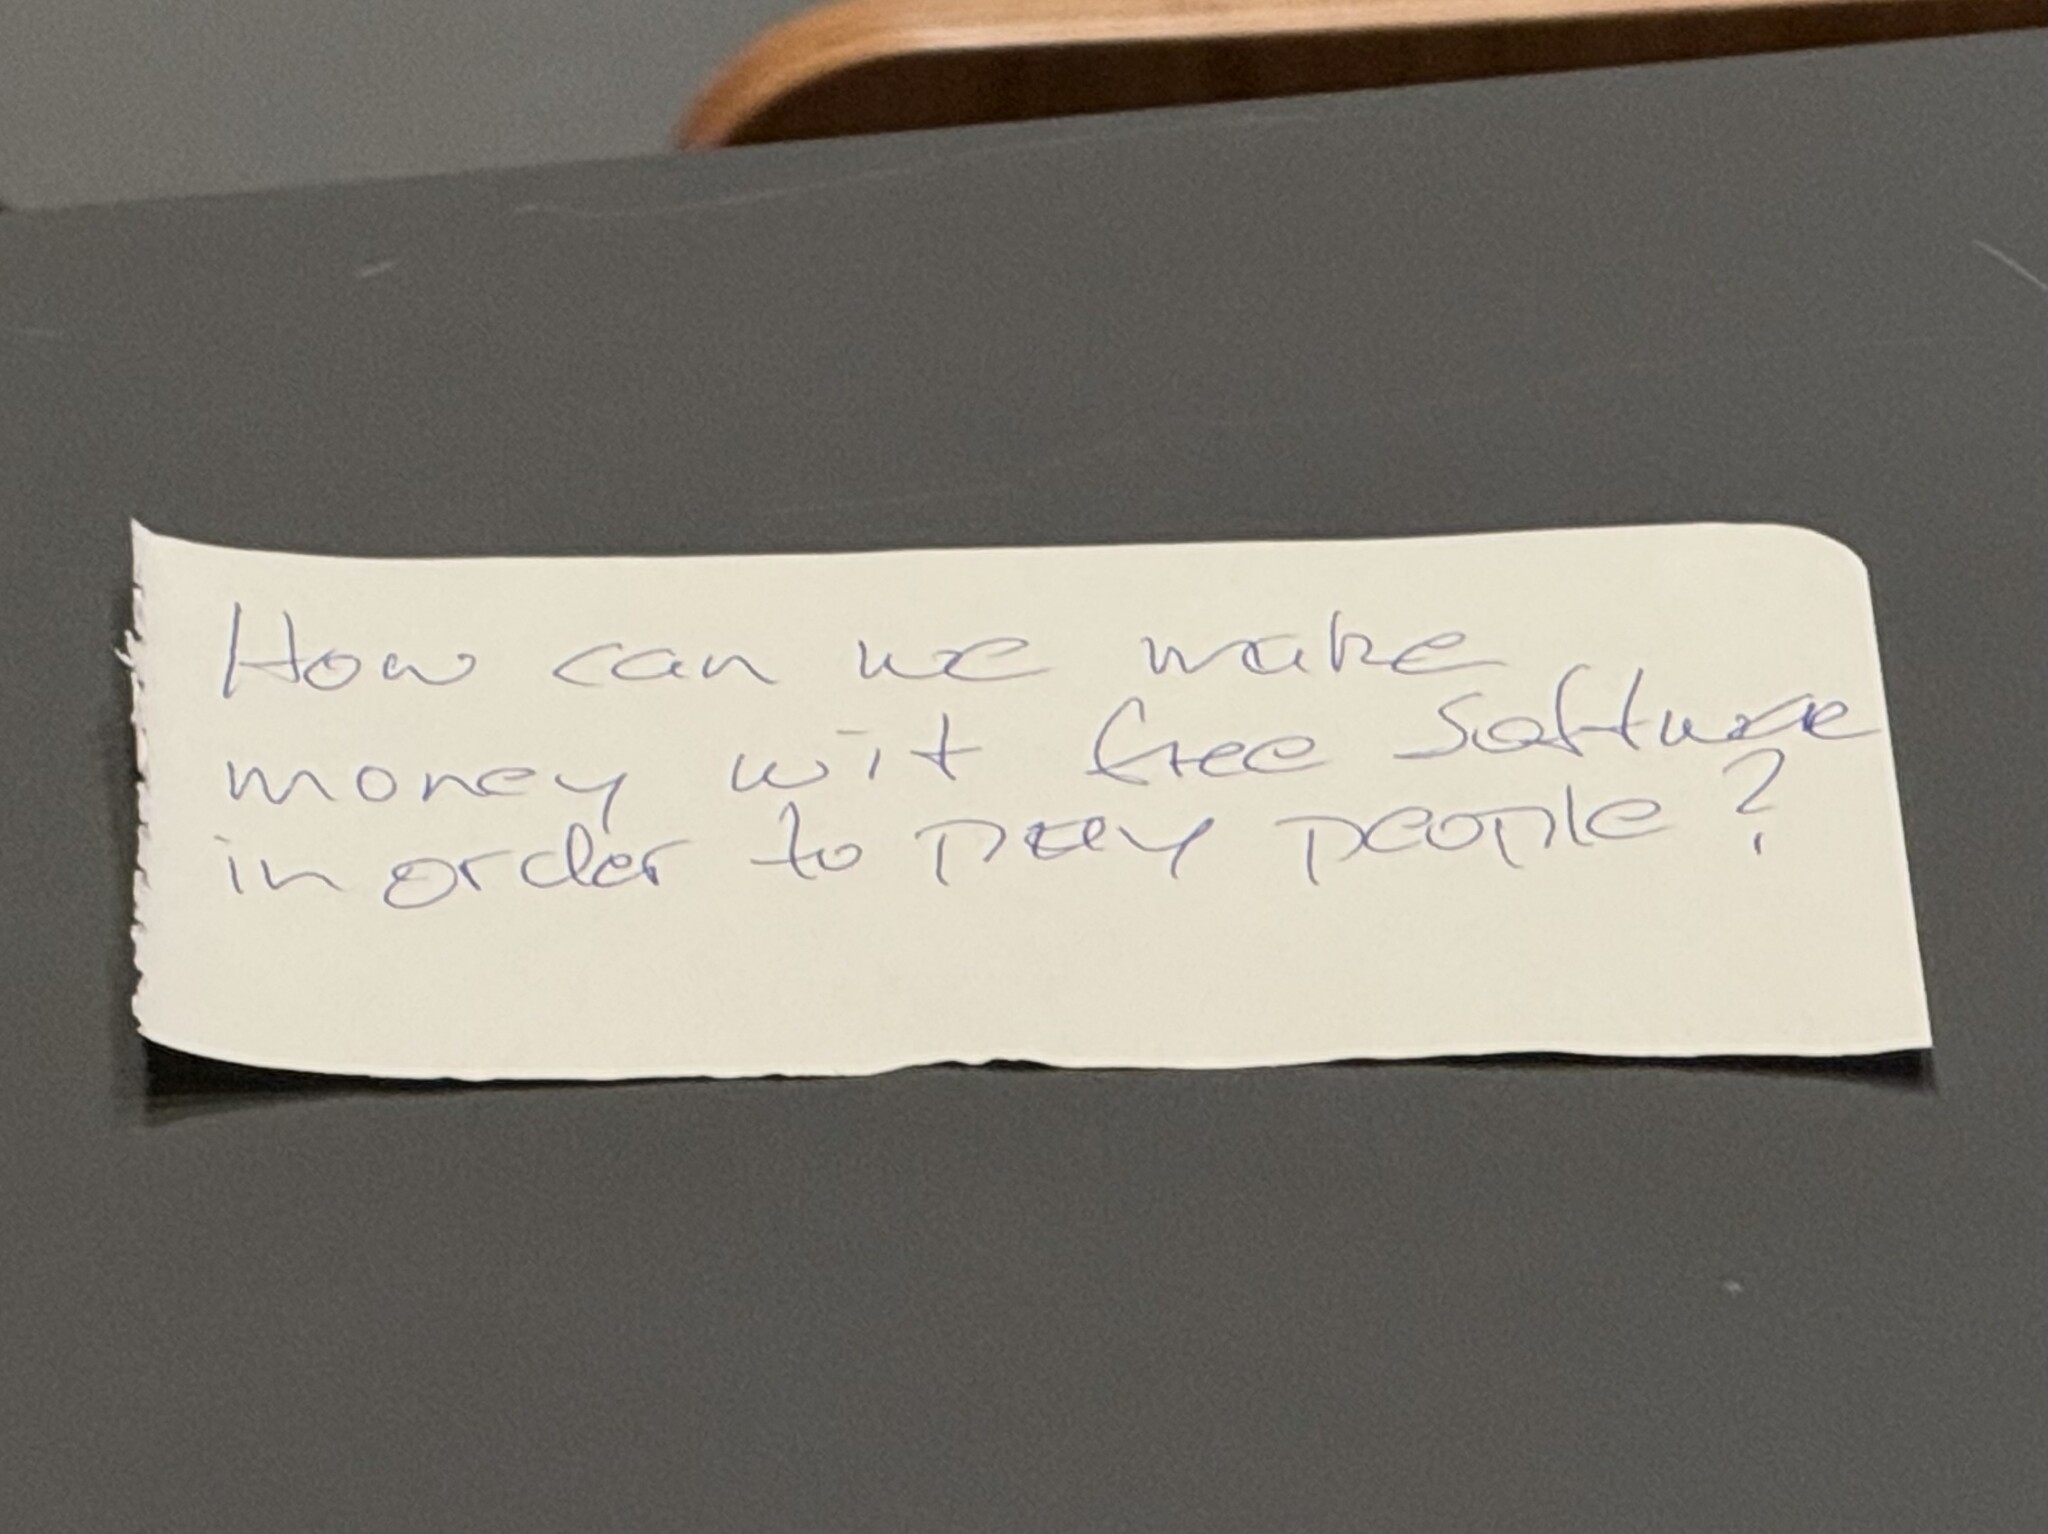 How can we make
money wit free software
in order to pay people?